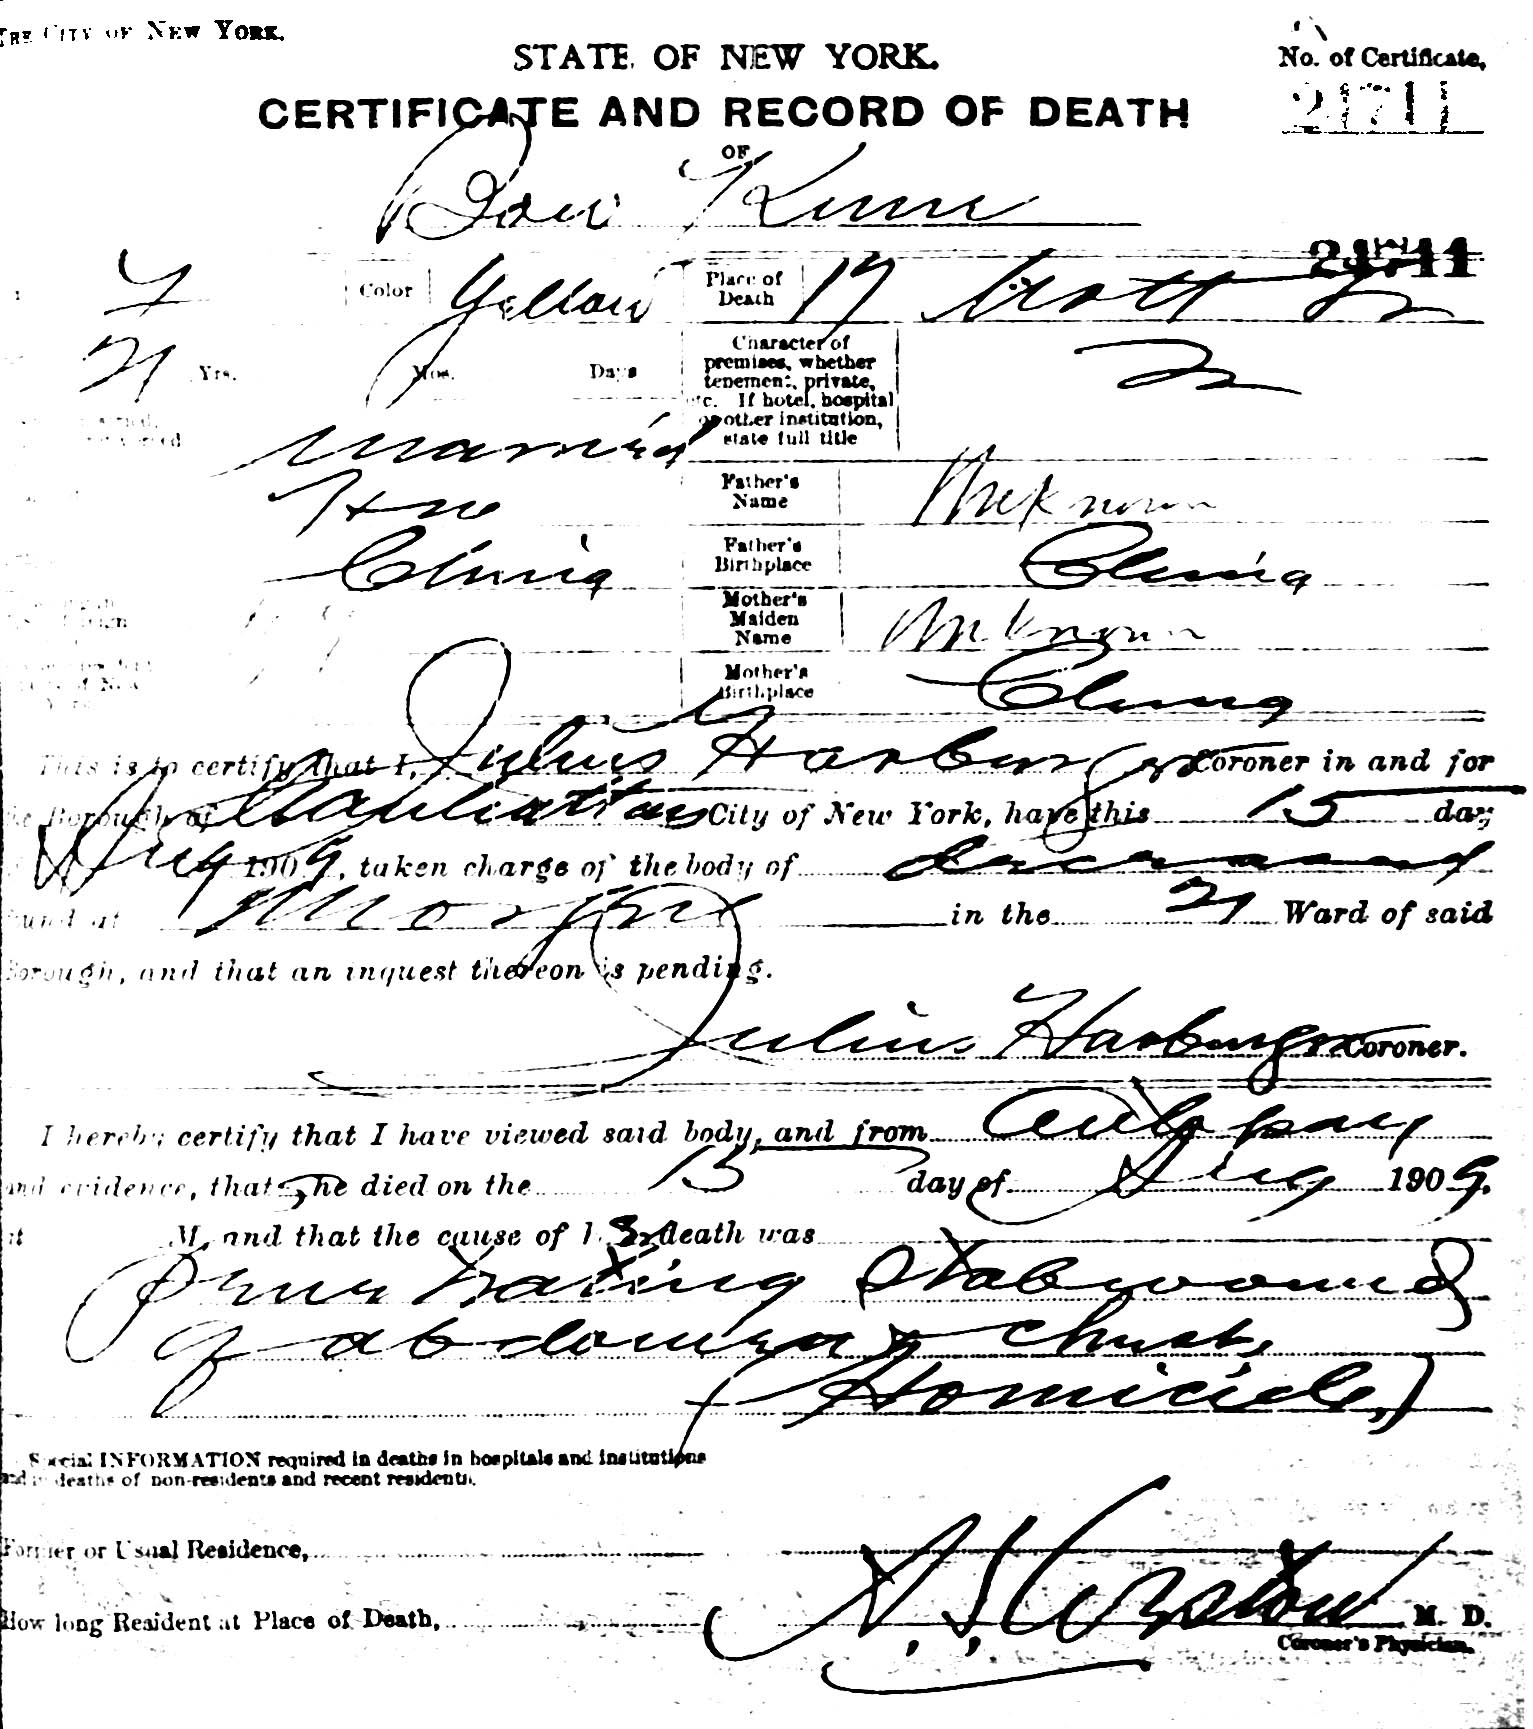 THE CITY OF NEW YORK.
STATE OF NEW YORK.
No. of Certificate,
21711
CERTIFICATE AND RECORD OF DEATH
OF
Bow Kum
F
Color
Yellow
Place of Death
17 Mott St
21 Yrs. Mos. Days
Character of premises, whether tenement, private, etc. If hotel, hospital or other institution, state full title
Married
Father's Name
Unknown
China
Father's Birthplace
China
Mother's Maiden Name
Unknown
Mother's Birthplace
China
This is to certify that I, Julius Harburger Coroner in and for
the Borough of Manhattan City of New York, have this 15 day
Aug 1909, taken charge of the body of deceased
found at Morgue in the 21 Ward of said
Borough, and that an inquest thereon is pending.
Julius Harburger Coroner.
I hereby certify that I have viewed said body, and from Autopsy
and evidence, that she died on the 15 day of Aug 1909.
at M, and that the cause of her death was
Penetrating Stab wound
of abdomen & chest
(Homicide)
Special INFORMATION required in deaths in hospitals and institutions
and in deaths of non-residents and recent residents.
Former or Usual Residence,
How long Resident at Place of Death,
M. D.
Coroner's Physician.